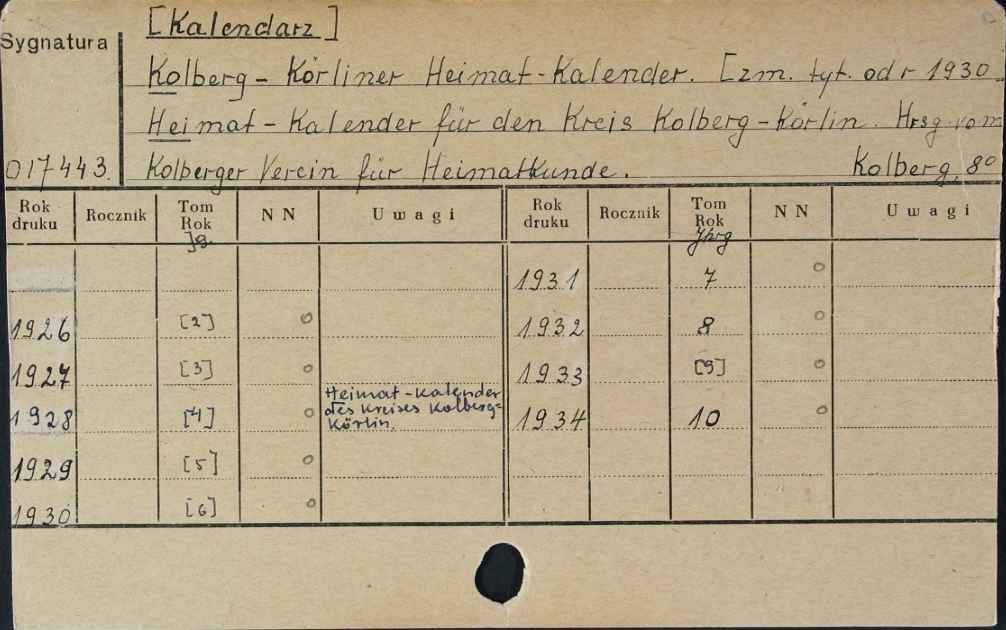 [Kalendarz]
Sygnatura
Kolberg - Körliner Heimat-Kalender. [zm. tyt. od r 1930
Heimat-Kalender für den Kreis Kolberg-Körlin. Hrsg. vom
017443. Kolberger Verein für Heimatkunde. Kolberg, 8°
Rok druku Rocznik Tom Rok Jg. NN Uwagi Rok druku Rocznik Tom Rok Jhrg NN Uwagi
1931 7 o
1926 [2] o 1932 8 o
1927 [3] o 1933 [9] o
Heimat-Kalender
des Kreises Kolberg-
Körlin.
1928 [4] o 1934 10 o
1929 [5] o
1930 [6] o